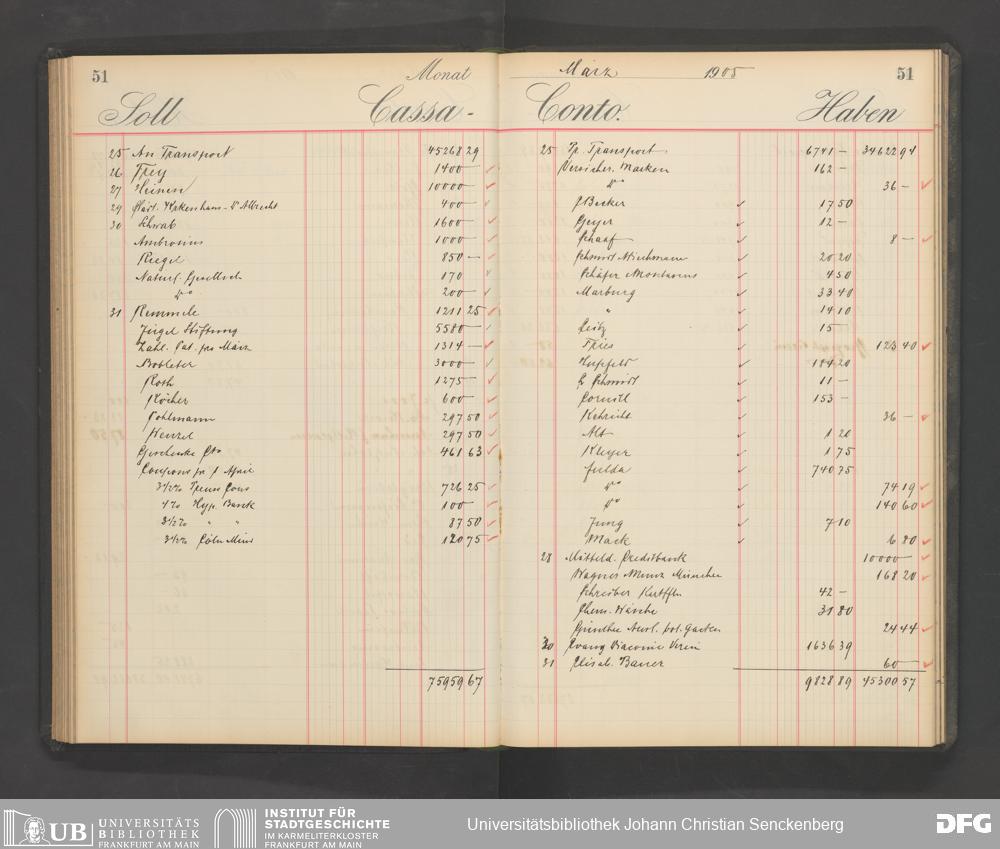 51 Monat
Soll Cassa-
25 An Transport 45268 29
26 Frey 1400 —
27 Heinen 10000 —
29 400 —
30 Schwab 1600 —
Ambrosius 1000 —
Riegel 850 —
Naturf. Gesellsch. 170
do 200 —
31 Remmele 1211 25
Jügel Stiftung 5580 —
Zahl. Cat. pro März 1314 —
Bobleter 3000 —
Roth 1275 —
Köcher 600 —
Pohlmann 297 50
Wenzel 297 50
Geschenke Cto 461 63
Coupons pr 1 April
3 1/2 % Preuss Cons 726 25
4 % Hyp. Bank 100 —
3 1/2 % " " 87 50
3 1/2 % Cöln Mind 120 75
75959 67
März 1905 51
Conto. Haben
25 Pr. Transport 6741 — 34622 94
Versicher. Marken 162 —
do 36 —
Becker 17 50
Geyer 12 —
Schaaf 8 —
Schmidt 20 20
Schäfer Montanus 4 50
Marburg 33 40
" 14 10
Leitz 15 —
Fries 123 40
Hupfeld 184 20
Schmidt 11 —
Cornill 153 —
Kehricht 36 —
Alt 1 20
Kleyer 1 75
Fulda 740 75
do 74 19
do 140 60
Jung 7 10
Mack 6 80
28 Mitteld. Creditbank 10000 —
Wagner München 168 20
Schreiber 42 —
Chem. Wäsche 31 80
Günther bot. Garten 24 44
30 Evang Diaconie Verein 1636 39
31 Elisab. Bauer 60 —
9828 89 45300 57
UB UNIVERSITÄTS
BIBLIOTHEK
FRANKFURT AM MAIN
INSTITUT FÜR
STADTGESCHICHTE
IM KARMELITERKLOSTER
FRANKFURT AM MAIN
Universitätsbibliothek Johann Christian Senckenberg
DFG